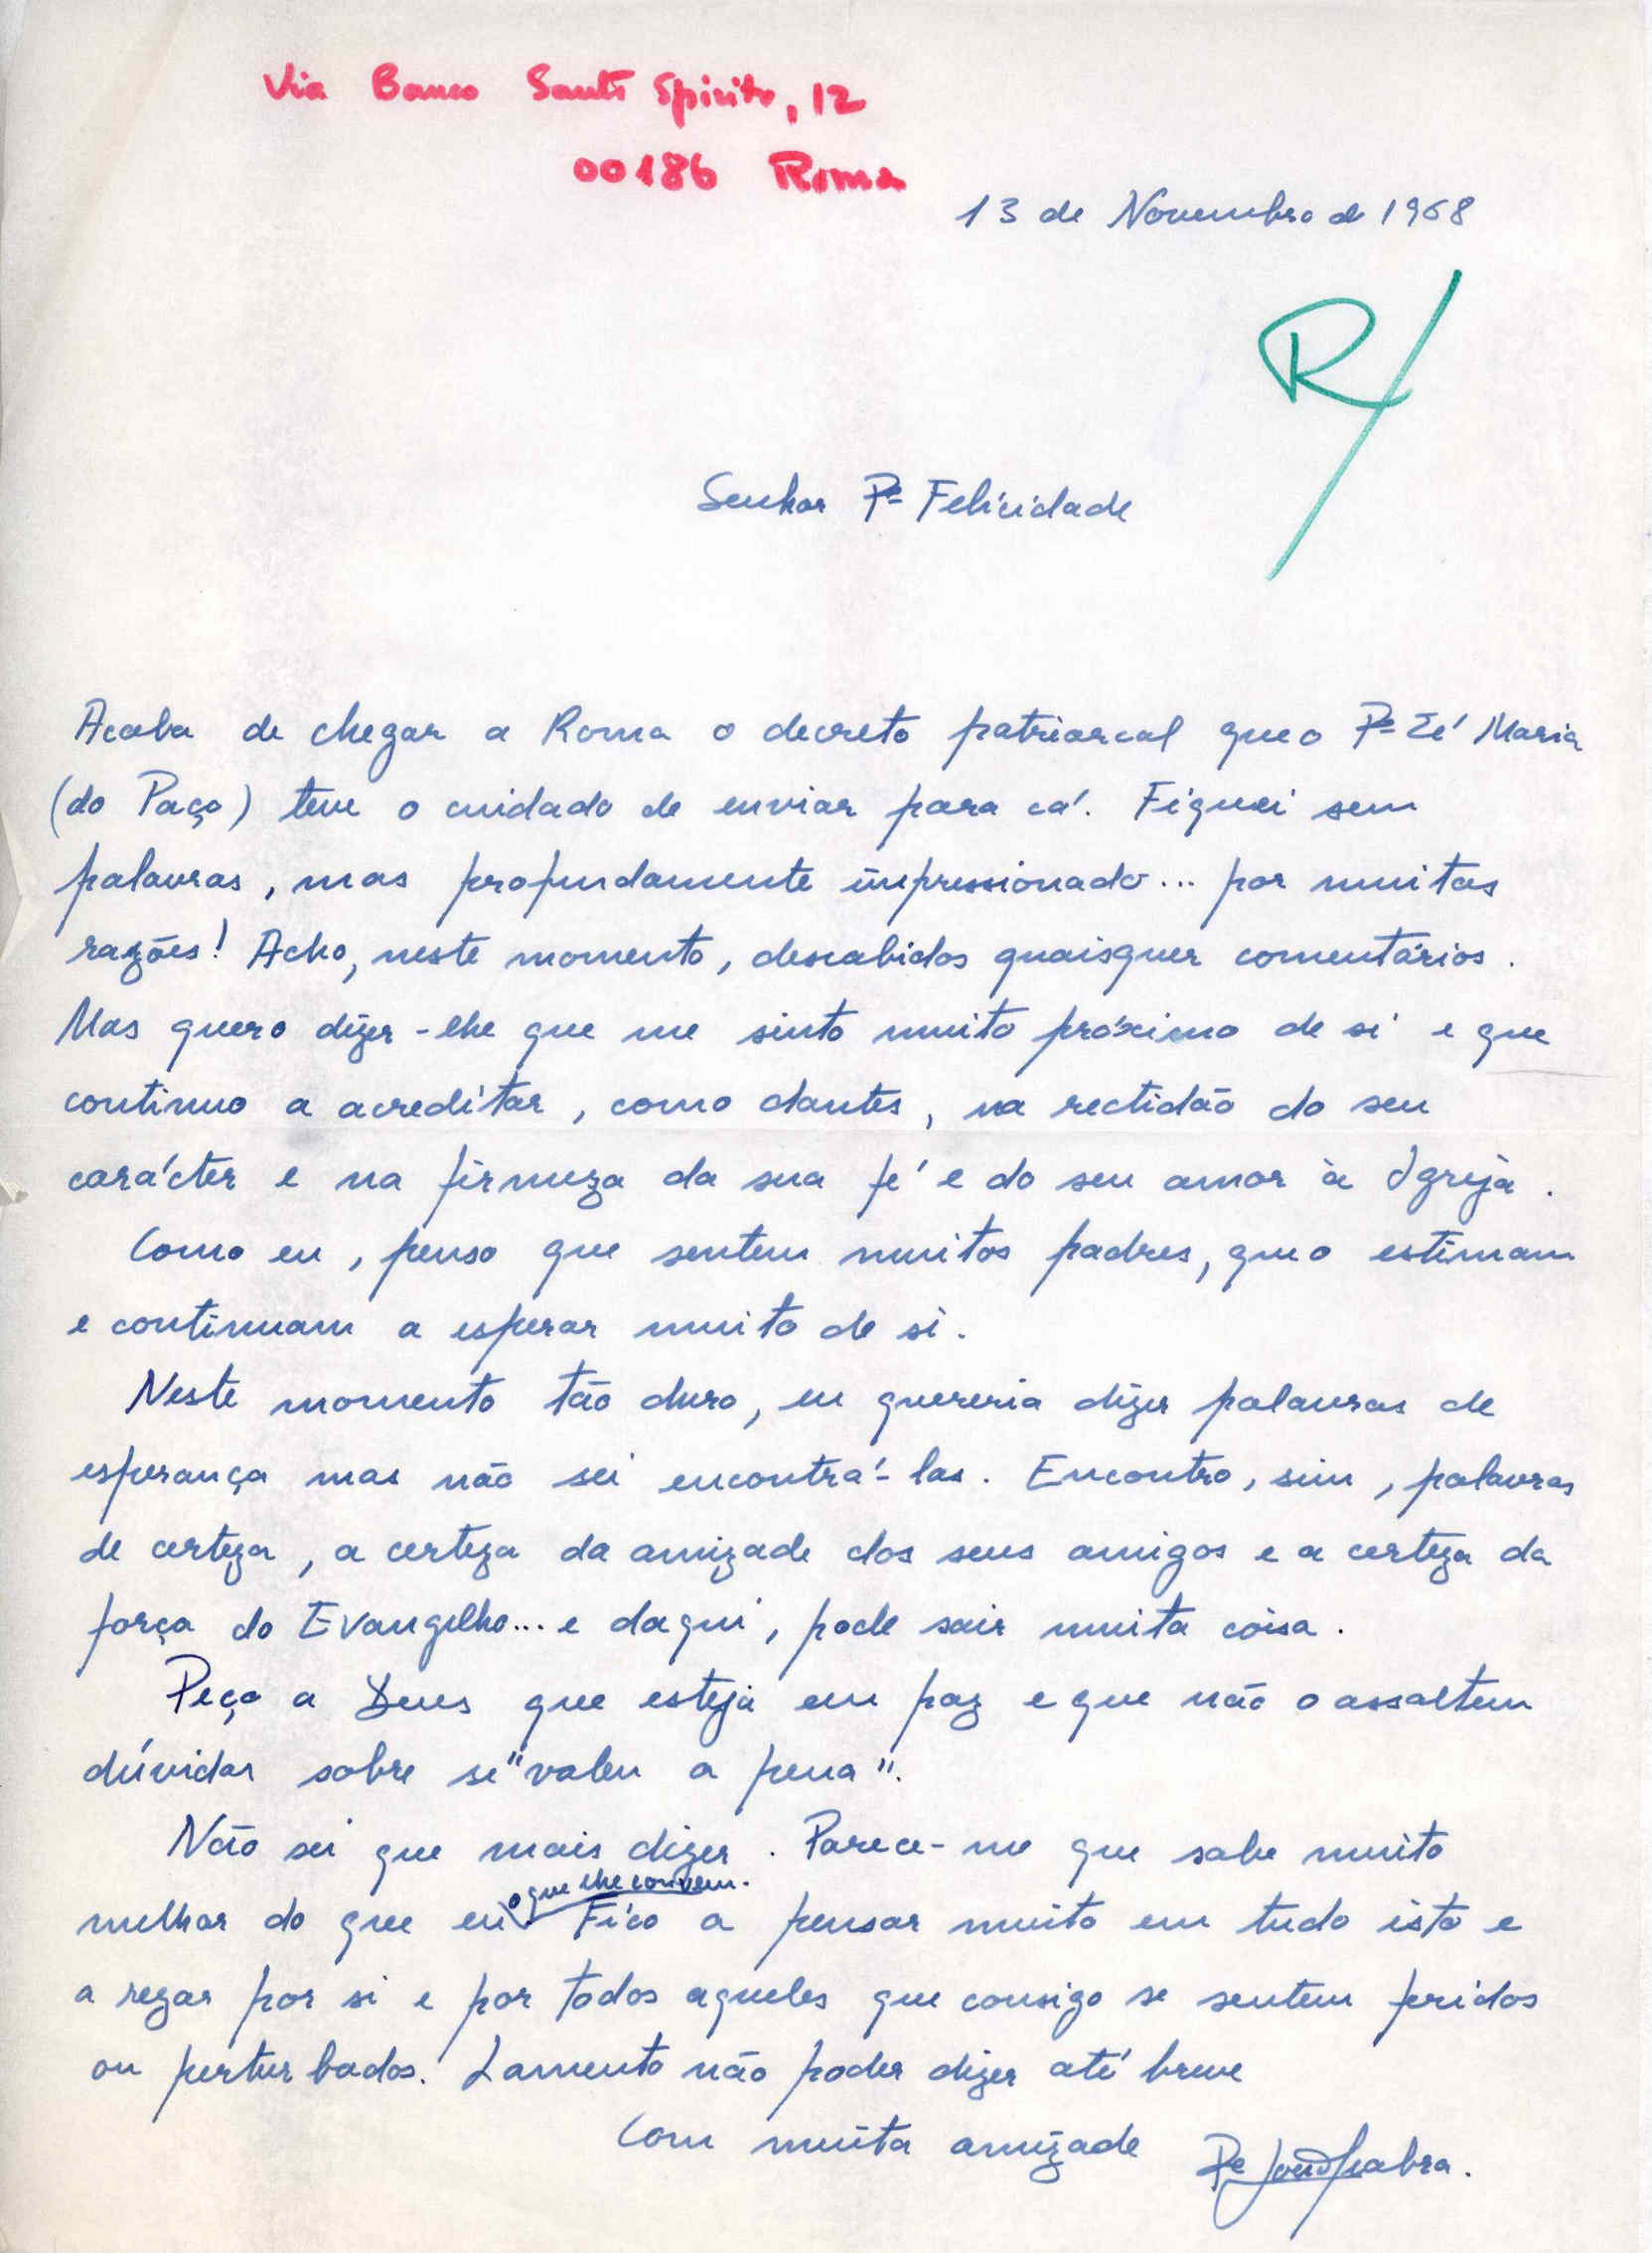 Via Banco Santo Spirito, 12
00186 Roma
13 de Novembro de 1968
R/
Senhor Pe Felicidade
Acaba de chegar a Roma o decreto patriarcal que o Pe Zé Maria
(do Paço) teve o cuidado de enviar para cá. Fiquei sem
palavras, mas profundamente impressionado... por muitas
razões! Acho, neste momento, descabidos quaisquer comentários.
Mas quero dizer-lhe que me sinto muito próximo de si e que
continuo a acreditar, como dantes, na rectidão do seu
carácter e na firmeza da sua fé e do seu amor à Igreja.
Como eu, penso que sentem muitos padres, que o estimam
e continuam a esperar muito de si.
Neste momento tão duro, eu quereria dizer palavras de
esperança mas não sei encontrá-las. Encontro, sim, palavras
de certeza, a certeza da amizade dos seus amigos e a certeza da
força do Evangelho... e daqui, pode sair muita coisa.
Peço a Deus que esteja em paz e que não o assaltem
dúvidas sobre se "valeu a pena".
Não sei que mais dizer. Parece-me que sabe muito
o que lhe convem.
melhor do que eu Fico a pensar muito em tudo isto e
a rezar por si e por todos aqueles que consigo se sentem feridos
ou perturbados. Lamento não poder dizer até breve
Com muita amizade Pe João Seabra.